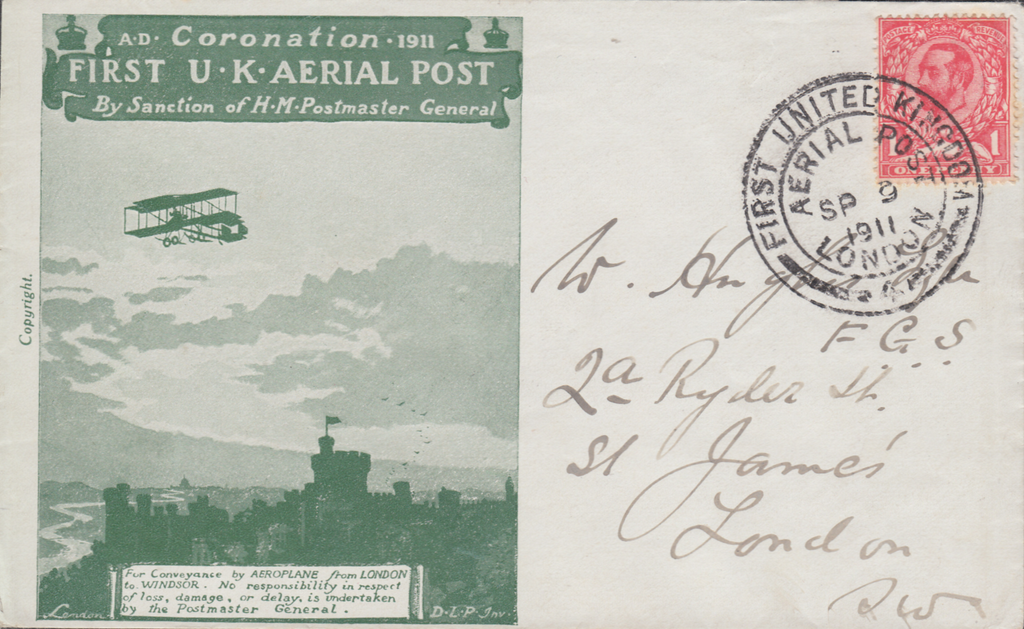 A·D· Coronation · 1911
FIRST U·K·AERIAL POST
By Sanction of H·M·Postmaster General
Copyright.
For Conveyance by AEROPLANE from LONDON
to WINDSOR. No responsibility in respect
of loss, damage, or delay, is undertaken
by the Postmaster General.
London
D·L·P· Inv·
POSTAGE REVENUE
1 1
ONE PENNY
FIRST UNITED KINGDOM
AERIAL POST
SP 9
1911
LONDON
W.
F.G.S.
2a Ryder St.
St James'
London
SW